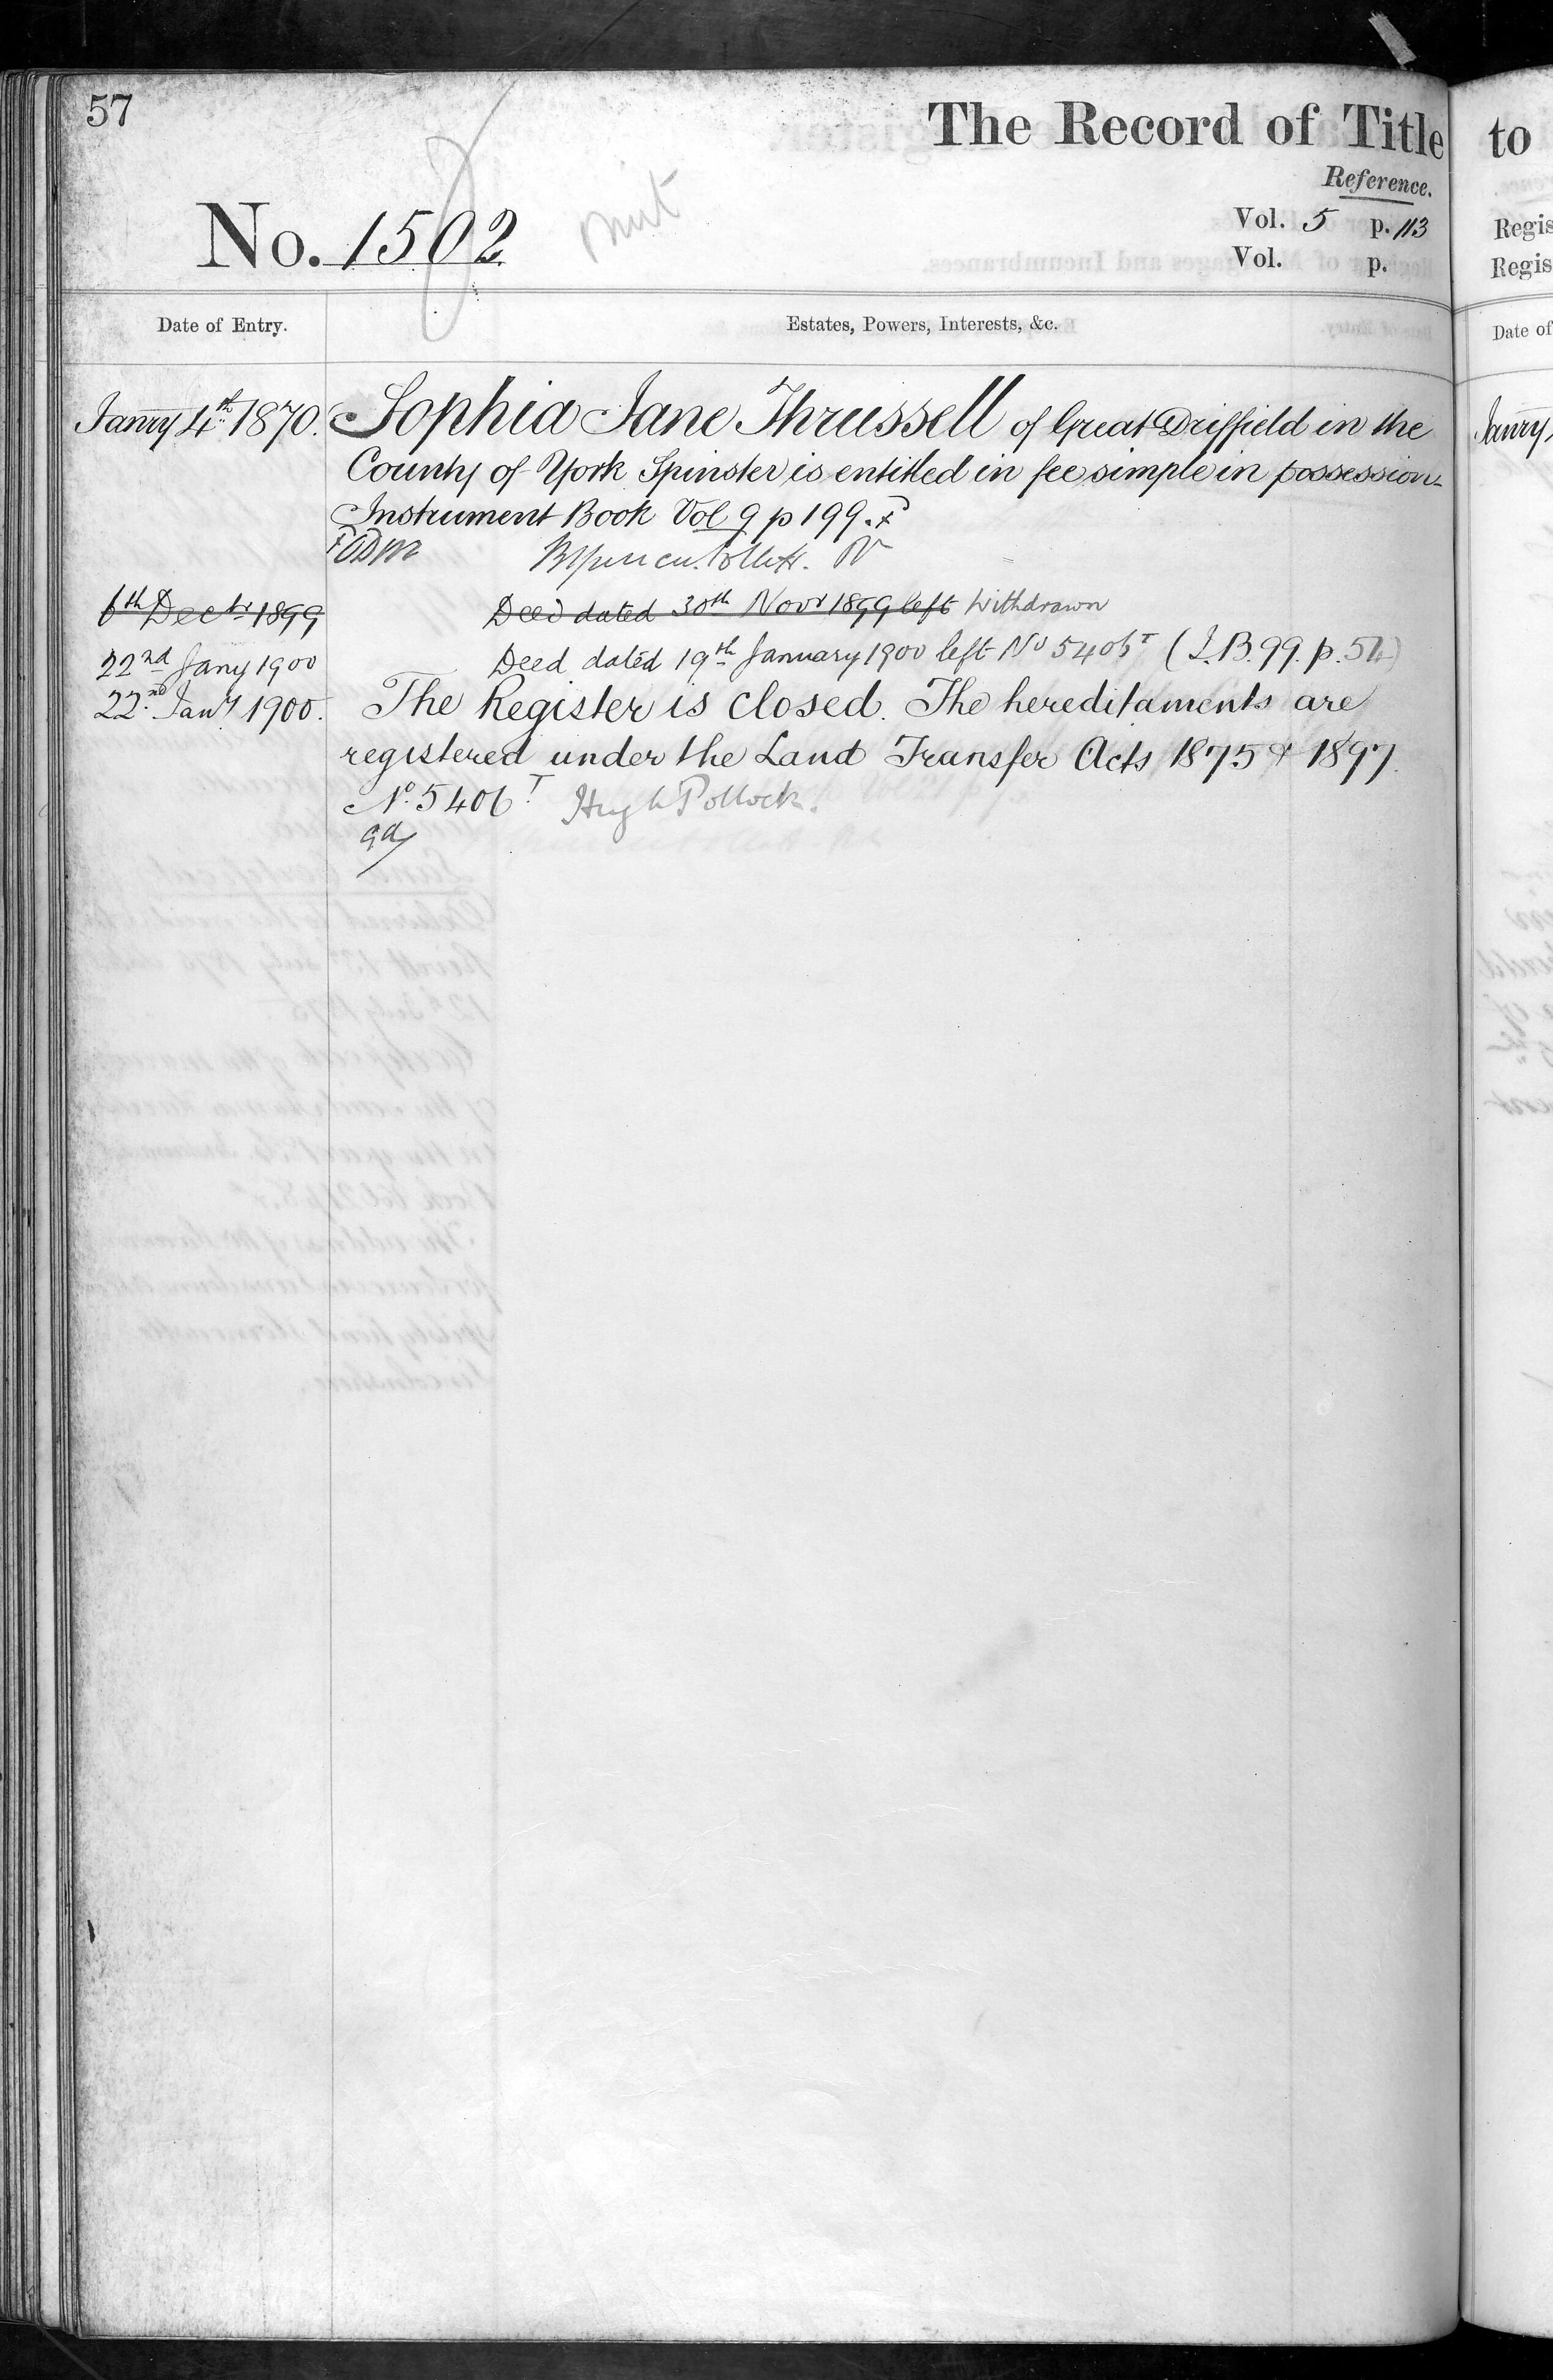 57
The Record of Title to
Reference.
No. 1502
Vol. 5 p. 113
Vol. p.
Regis
Regis
Date of Entry.
Estates, Powers, Interests, &c.
Date of
Janry 4th 1870. Sophia Jane Thrussell of Great Driffield in the
County of York Spinster is entitled in fee simple in possession
Instrument Book Vol 9 p 199.
6th Decr 1899 Deed dated 30th Novr 1899 left Withdrawn
22nd Jany 1900 Deed dated 19th January 1900 left No 5406T (I.B. 99. p. 54)
22nd Jany 1900. The Register is closed. The hereditaments are
registered under the Land Transfer Acts 1875 & 1897.
No. 5406T Hugh Pollock.
Janry